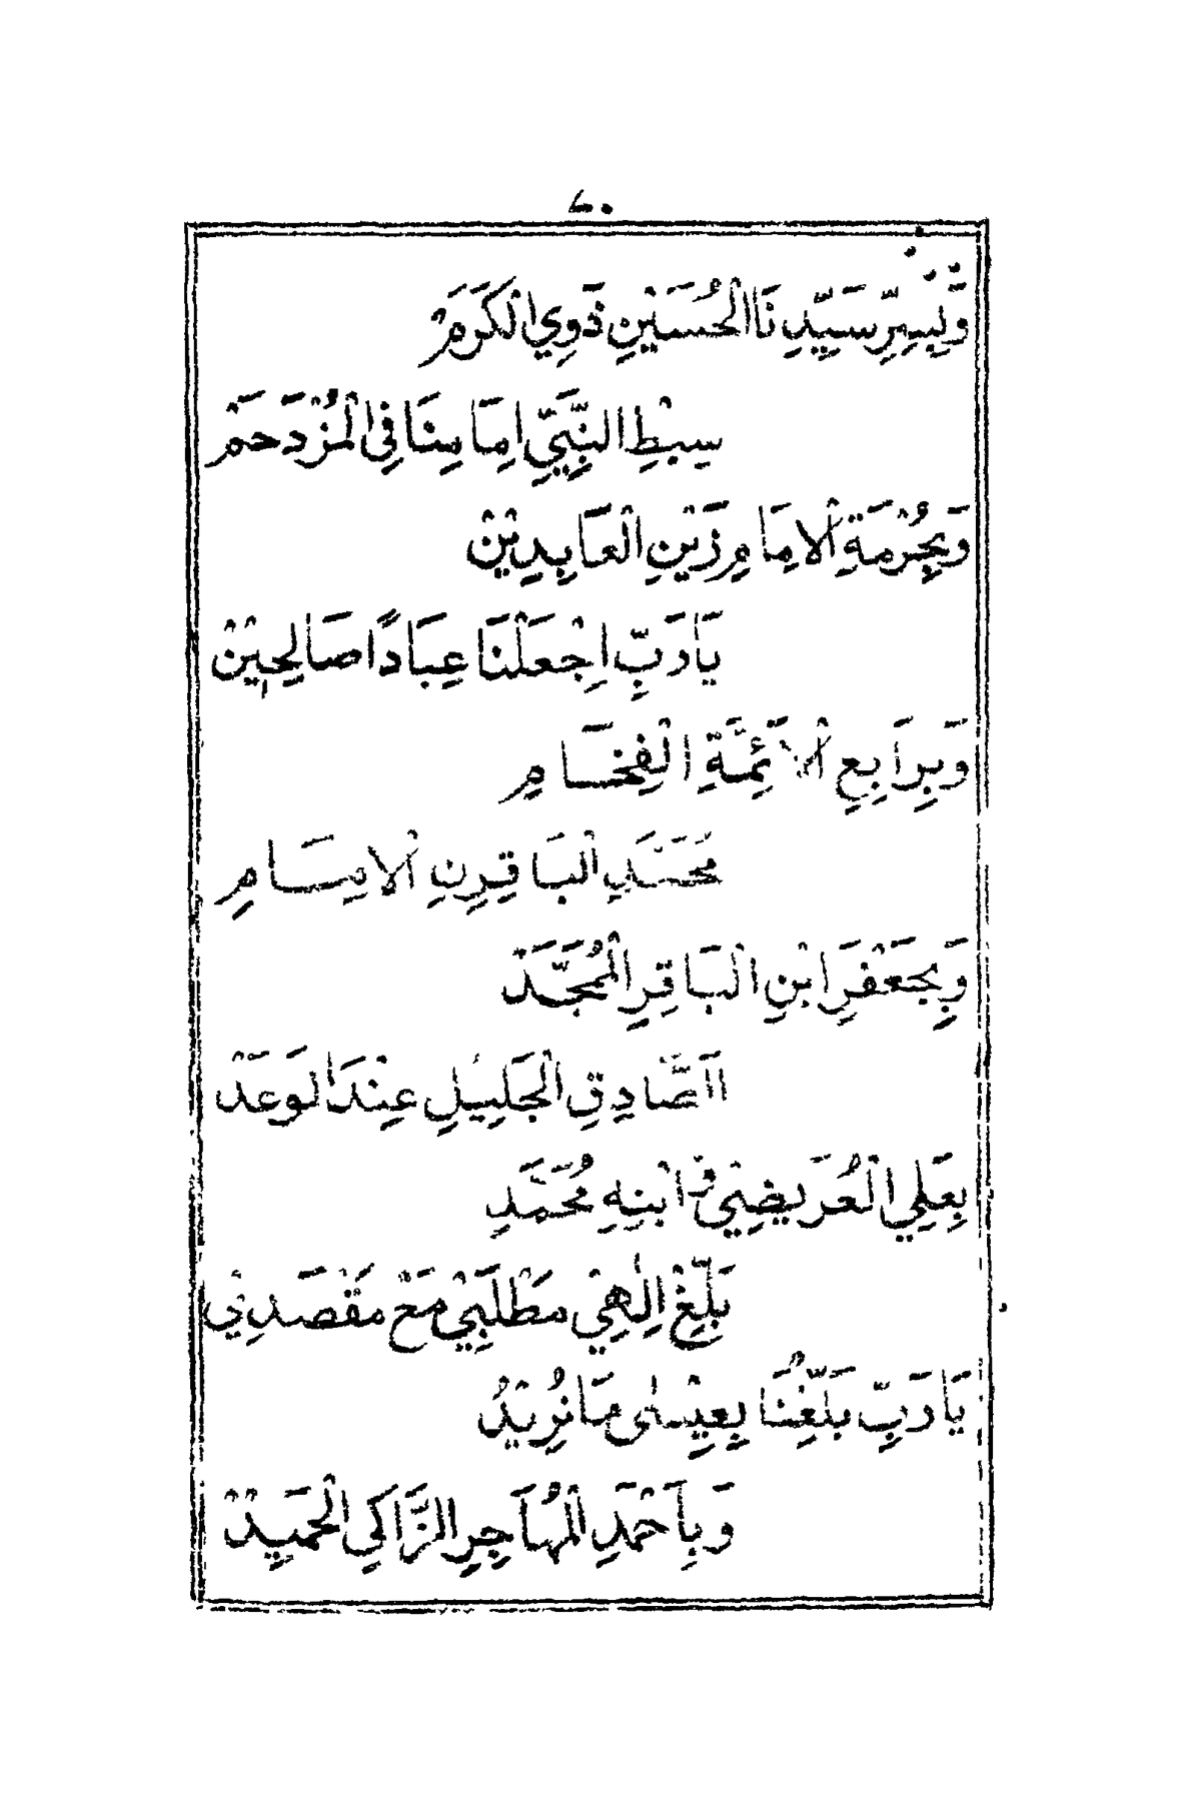 وَبِسِرِّ سَيِّدِنَا الْحُسَيْنِ ذَوِي الْكَرَمْ
سِبْطِ النَّبِيِّ اِمَامِنَا فِى الْمُزْدَحَمْ
وَبِحُرْمَةِ الْاِمَامِ زَيْنِ الْعَابِدِيْنْ
يَارَبِّ اِجْعَلْنَا عِبَادًا صَالِحِيْنْ
وَبِرَابِعِ الْاَئِمَّةِ الْفِخَامِ
مُحَمَّدِ الْبَاقِرِنِ الْاِمَامِ
وَبِجَعْفَرِ ابْنِ الْبَاقِرِ الْمُمَجَّدْ
االصَّادِقِ الْجَلِيْلِ عِنْدَ الْوَعَدْ
بِعَلِي الْعُرَيْضِيْ وَابْنِهِ مُحَمَّدِ
بَلِّغْ اِلٰهِيْ مَطْلَبِيْ مَعْ مَقْصَدِيْ
يَارَبِّ بَلِّغْنَا بِعِيْسٰى مَانُرِيْدُ
وَبِاَحْمَدِ الْمُهَاجِرِ الزَّاكِي الْحَمِيْدْ